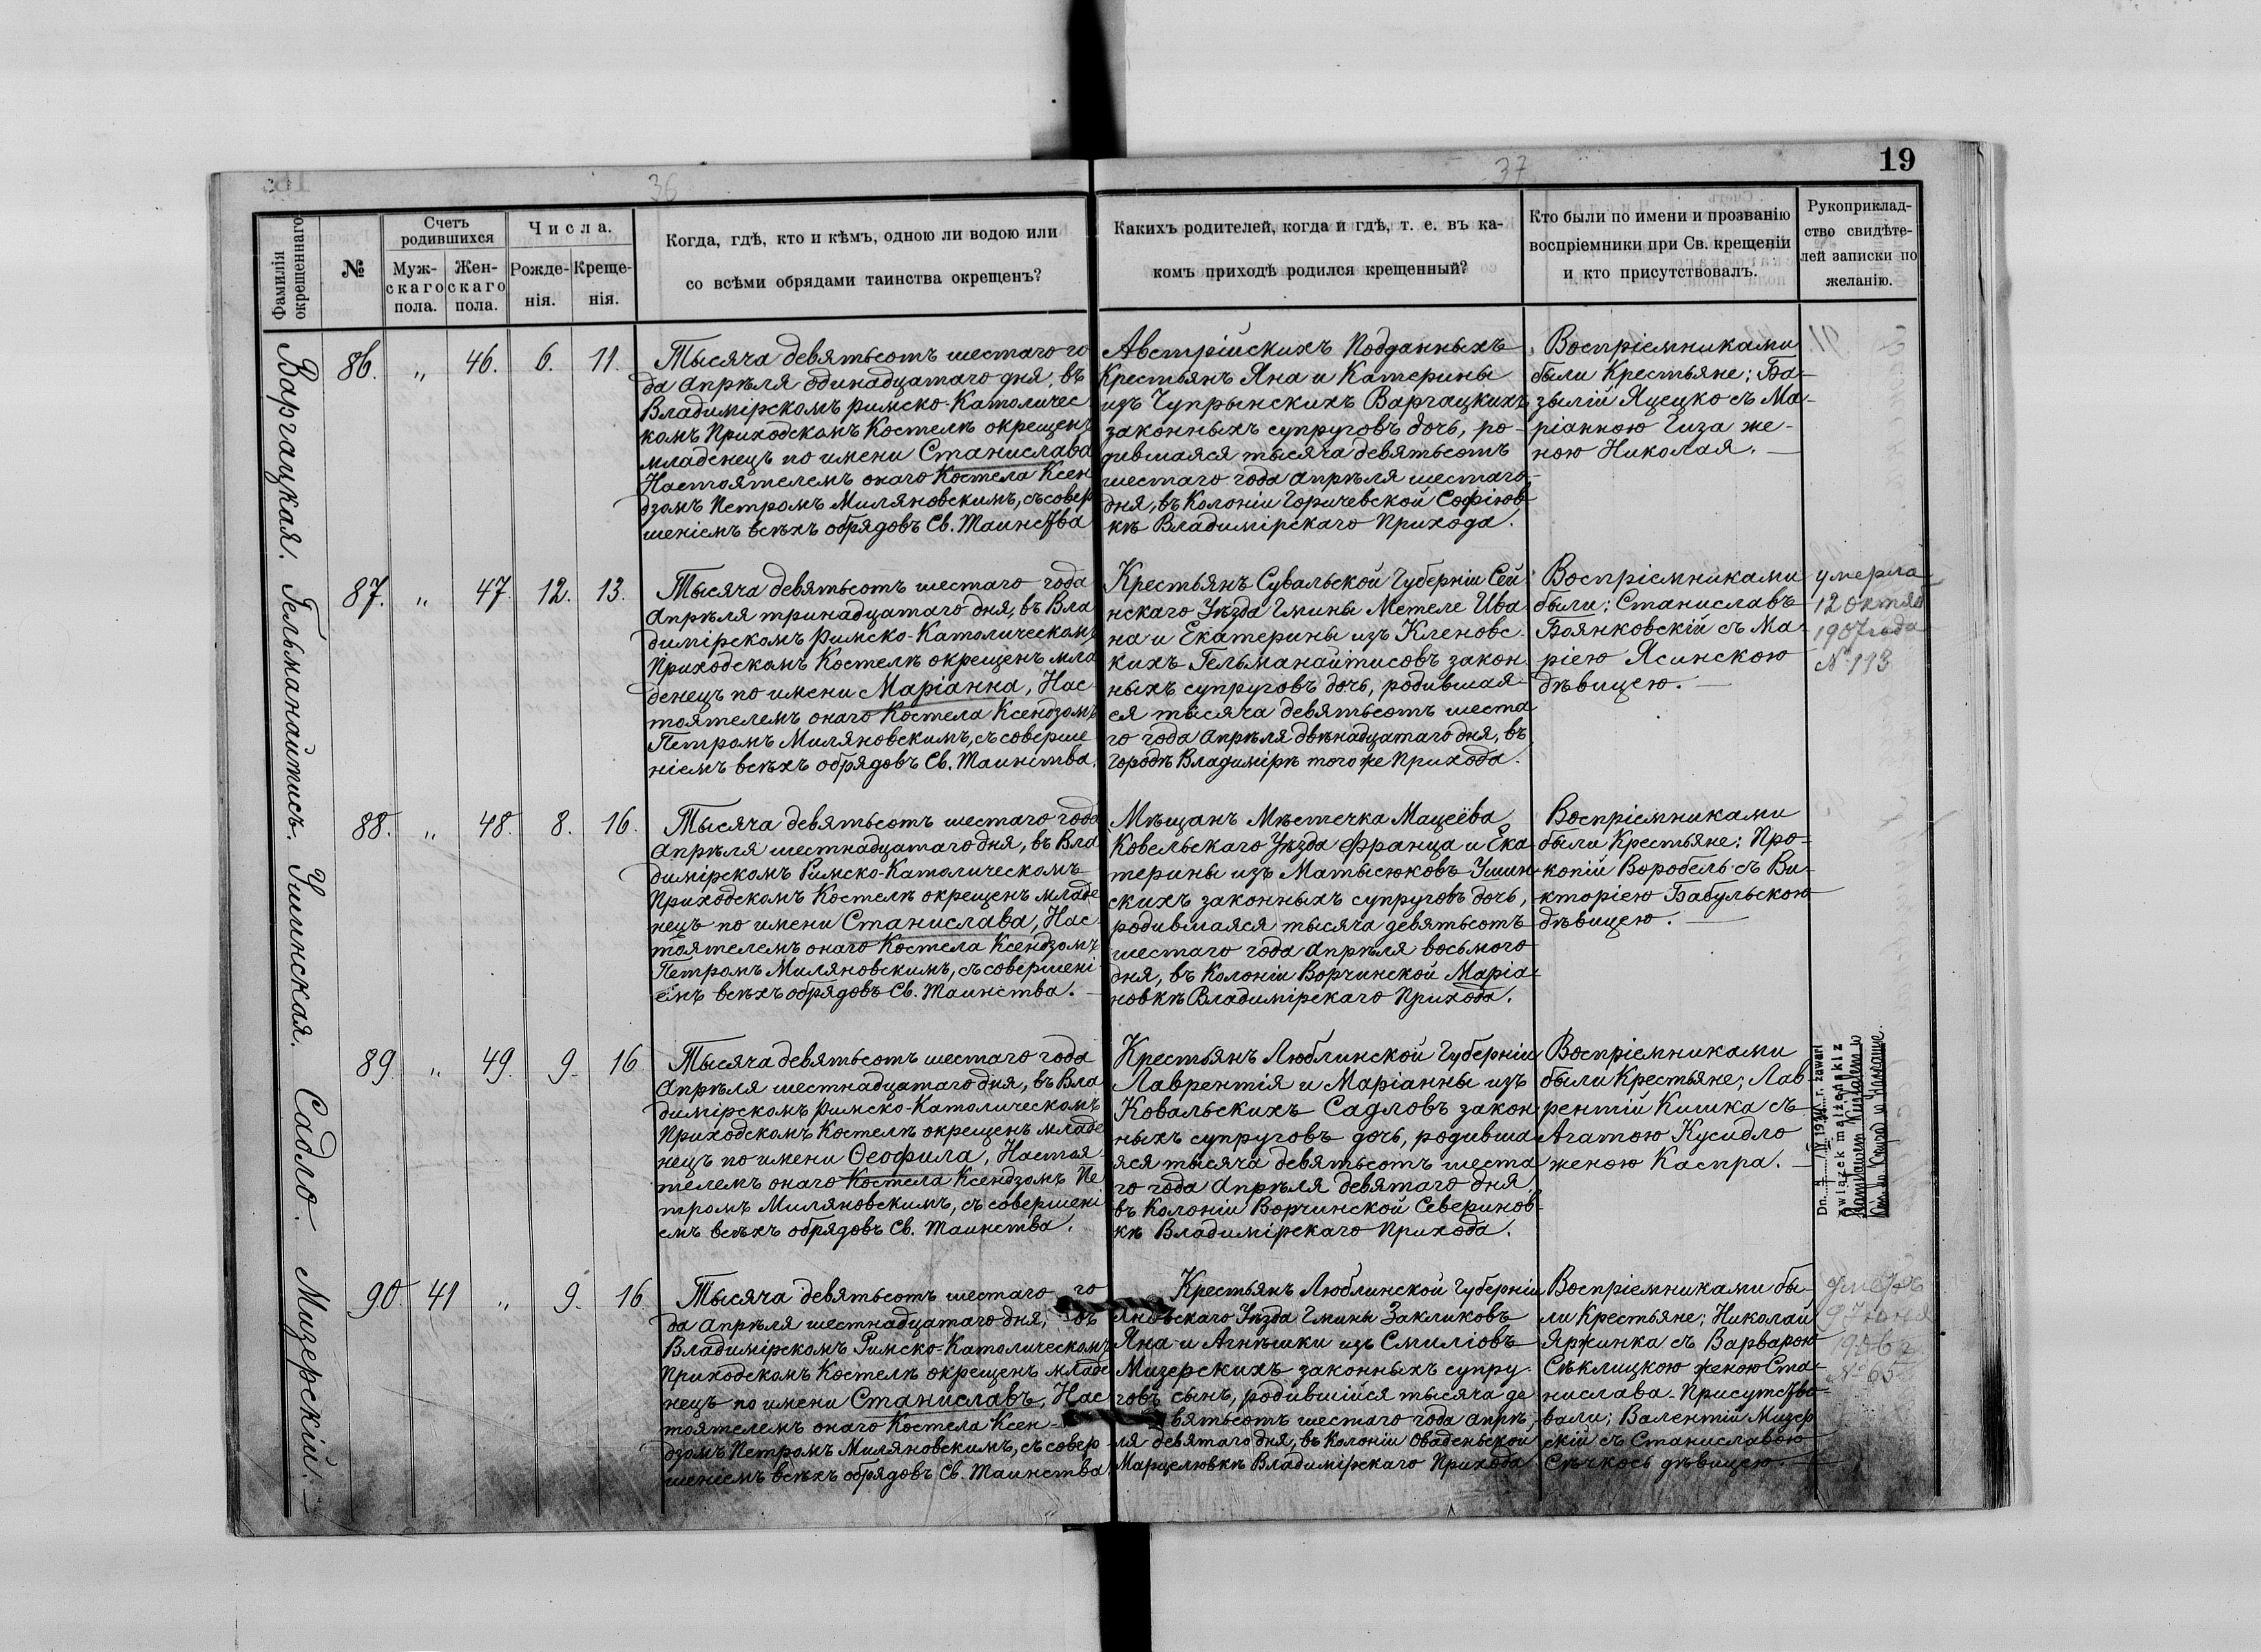 36
37
19
Фамилія
окрещеннаго.
№
Счетъ
родившихся
Муж-
скаго
пола.
Жен-
скаго
пола.
Числа.
Рожде-
нія.
Креще-
нія.
Когда, гдѣ, кто и кѣмъ, одною ли водою или
со всѣми обрядами таинства окрещенъ?
Какихъ родителей, когда и гдѣ, т. е. въ ка-
комъ приходѣ родился крещенный?
Кто были по имени и прозванію
воспріемники при Св. крещеніи
и кто присутствовалъ.
Рукоприклад-
ство свидѣте-
лей записки по
желанію.
Варгацкая.
86. „ 46. 6. 11.
Тысяча девятьсотъ шестаго го
да Апрѣля одинадцатаго дня, въ
Владимірскомъ Римско-Католичес
комъ Приходскомъ Костелѣ окрещенъ
младенецъ по имени Станислава
Настоятелемъ онаго Костела Ксен
дзомъ Петромъ Миляновскимъ, съ совер
шеніемъ всѣхъ обрядовъ Св. Таинства
Австрійскихъ Подданныхъ
Крестьянъ Яна и Катерины
изъ Чупрынскихъ Варгацкихъ
законныхъ супруговъ дочь, ро-
дившаяся тысяча девятьсотъ
шестаго года Апрѣля шестаго
дня, въ Колоніи Горичевской Софіюв-
кѣ Владимірскаго Прихода.
Воспріемниками
были Крестьяне; Ба-
зылій Яцецко съ Ма-
ріанною Гиза же-
ною Николая.
Гельманайтисъ.
87. „ 47. 12. 13.
Тысяча девятьсотъ шестаго года
Апрѣля тринадцатаго дня, въ Вла
димірскомъ Римско-Католическомъ
Приходскомъ Костелѣ окрещенъ мла
денецъ по имени Маріанна, Нас-
тоятелемъ онаго Костела Ксендзомъ
Петромъ Миляновскимъ, съ соверше
ніемъ всѣхъ обрядовъ Св. Таинства.
Крестьянъ Сувальской Губерніи Сей
нскаго Уѣзда Гмины Метеле Ива
на и Екатерины изъ Кленовс-
кихъ Гельманайтисовъ закон
ныхъ супруговъ дочь, родившая-
ся тысяча девятьсотъ шеста
го года Апрѣля двѣнадцатаго дня, въ
городѣ Владимірѣ того же Прихода.
Воспріемниками
были; Станиславъ
Боянковскій съ Ма-
ріею Ясинскою
дѣвицею.
умерла
12 октяб
1907 года
№ 113
Ушинская.
88. „ 48. 8. 16.
Тысяча девятьсотъ шестаго года
Апрѣля шестнадцатаго дня, въ Вла
димірскомъ Римско-Католическомъ
Приходскомъ Костелѣ окрещенъ младе
нецъ по имени Станислава, Нас-
тоятелемъ онаго Костела Ксендзомъ
Петромъ Миляновскимъ, съ совершені
емъ всѣхъ обрядовъ Св. Таинства.
Мѣщанъ Мѣстечка Мацеёва
Ковельскаго Уѣзда Франца и Ека
терины изъ Матысюковъ Ушин
скихъ законныхъ супруговъ дочь,
родившаяся тысяча девятьсотъ
шестаго года Апрѣля восьмого
дня, въ Колоніи Ворчинской Маріа
новкѣ Владимірскаго Прихода.
Воспріемниками
были Крестьяне; Про-
копій Воробель съ Ви-
кторіею Бабульскою
дѣвицею.
Садло.
89 „ 49. 9. 16
Тысяча девятьсотъ шестаго года
Апрѣля шестнадцатаго дня, въ Вла
димірскомъ Римско-Католическомъ
Приходскомъ Костелѣ окрещенъ младе
нецъ по имени Ѳеофила, Настоя-
телемъ онаго Костела Ксендзомъ Пе
тромъ Миляновскимъ, съ совершені
емъ всѣхъ обрядовъ Св. Таинства.
Крестьянъ Люблинской Губерніи
Лаврентія и Маріанны изъ
Ковальскихъ Садловъ закон
ныхъ супруговъ дочь, родивша
яся тысяча девятьсотъ шеста
го года Апрѣля девятаго дня
въ Колоніи Ворчинской Северинов-
кѣ Владимірскаго Прихода.
Воспріемниками
были Крестьяне; Лав
рентій Кишка съ
Агатою Кусидло
женою Каспра.
zawarł
związek małżeński z
Мизерскій.
90. 41 „ 9. 16.
Тысяча девятьсотъ шестаго го
да Апрѣля шестнадцатаго дня, въ
Владимірскомъ Римско-Католическомъ
Приходскомъ Костелѣ окрещенъ младе
нецъ по имени Станиславъ, Нас
тоятелемъ онаго Костела Ксен-
дзомъ Петромъ Миляновскимъ, съ совер
шеніемъ всѣхъ обрядовъ Св. Таинства
Крестьянъ Люблинской Губерніи
Яновскаго Уѣзда Гмины Закликовъ
Яна и Агнѣшки изъ Смиліовъ
Мизерскихъ законныхъ супру-
говъ сынъ, родившійся тысяча де
вятьсотъ шестаго года Апрѣ
ля девятаго дня, въ Колоніи Оваденьской
Марцелювкѣ Владимірскаго Прихода
Воспріемниками бы-
ли Крестьяне; Николай
Яржинка съ Варварою
Сѣклицкою женою Ста-
нислава. Присутство-
вали; Валентій Мизер
скій съ Станиславою
Сѣчкось дѣвицею.
умеръ
1906 г.
№ 65